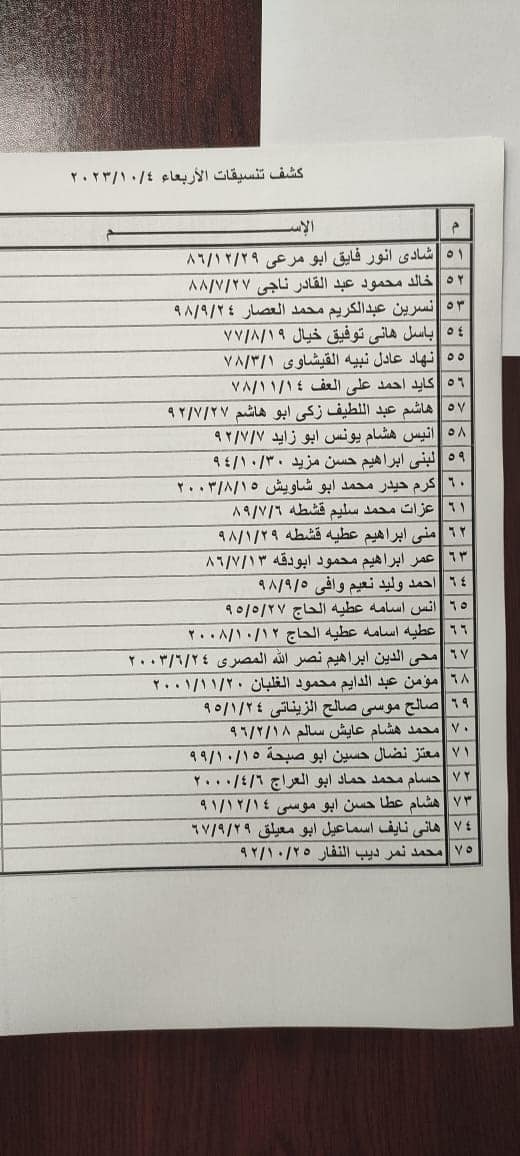 كشف تنسيقات الأربعاء ٢٠٢٣/١٠/٤
م الإســـــــــم
٥١ شادى انور فايق ابو مرعى ٨٦/١٢/٢٩
٥٢ خالد محمود عبد القادر ناجى ٨٨/٧/٢٧
٥٣ نسرين عبدالكريم محمد العصار ٩٨/٩/٢٤
٥٤ باسل هانى توفيق خيال ٧٧/٨/١٩
٥٥ نهاد عادل نبيه القيشاوى ٧٨/٣/١
٥٦ كايد احمد على العف ٧٨/١١/١٤
٥٧ هاشم عبد اللطيف زكى ابو هاشم ٩٢/٧/٢٧
٥٨ انيس هشام يونس ابو زايد ٩٢/٧/٧
٥٩ لبنى ابراهيم حسن مزيد ٩٤/١٠/٣٠
٦٠ كرم حيدر محمد ابو شاويش ٢٠٠٣/٨/١٥
٦١ عزات محمد سليم قشطه ٨٩/٧/٦
٦٢ منى ابراهيم عطيه قشطه ٩٨/١/٢٩
٦٣ عمر ابراهيم محمود ابودقه ٨٦/٧/١٣
٦٤ احمد وليد نعيم وافى ٩٨/٩/٥
٦٥ انس اسامه عطيه الحاج ٩٥/٥/٢٧
٦٦ عطيه اسامه عطيه الحاج ٢٠٠٨/١٠/١٢
٦٧ محى الدين ابراهيم نصر الله المصرى ٢٠٠٣/٦/٢٤
٦٨ مؤمن عبد الدايم محمود الغلبان ٢٠٠١/١١/٢٠
٦٩ صالح موسى صالح الزيناتى ٩٥/١/٢٤
٧٠ محمد هشام عايش سالم ٩٦/٢/١٨
٧١ معتز نضال حسين ابو صبحة ٩٩/١٠/١٥
٧٢ حسام محمد حماد ابو العراج ٢٠٠٠/٤/٦
٧٣ هشام عطا حسن ابو موسى ٩١/١٢/١٤
٧٤ هانى نايف اسماعيل ابو معيلق ٦٧/٩/٢٩
٧٥ محمد نمر ديب النفار ٩٢/١٠/٢٥